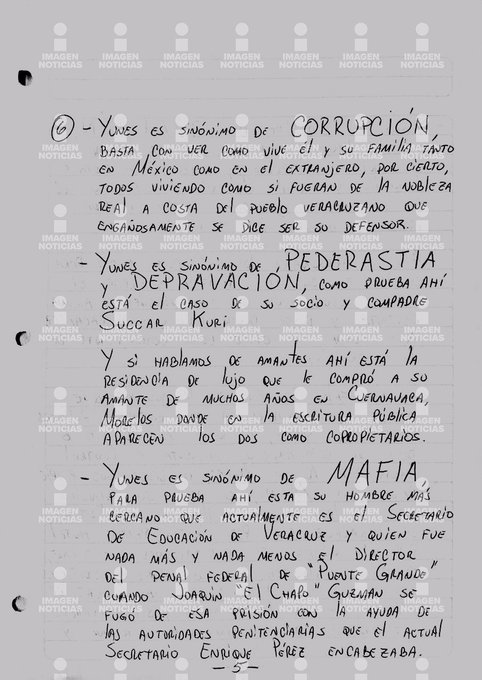 6 - YUNES ES SINÓNIMO DE CORRUPCIÓN,
BASTA CON VER COMO VIVE ÉL Y SU FAMILIA TANTO
EN MÉXICO COMO EN EL EXTRANJERO, POR CIERTO,
TODOS VIVIENDO COMO SI FUERAN DE LA NOBLEZA
REAL A COSTA DEL PUEBLO VERACRUZANO QUE
ENGAÑOSAMENTE SE DICE SER SU DEFENSOR.
- YUNES ES SINÓNIMO DE PEDERASTIA
Y DEPRAVACIÓN, COMO PRUEBA AHÍ
ESTÁ EL CASO DE SU SOCIO Y COMPADRE
SUCCAR KURI
Y SI HABLAMOS DE AMANTES AHÍ ESTÁ LA
RESIDENCIA DE LUJO QUE LE COMPRÓ A SU
AMANTE DE MUCHOS AÑOS EN CUERNAVACA,
MORELOS DONDE EN LA ESCRITURA PÚBLICA
APARECEN LOS DOS COMO COPROPIETARIOS.
- YUNES ES SINÓNIMO DE MAFIA,
PARA PRUEBA AHÍ ESTA SU HOMBRE MÁS
CERCANO QUE ACTUALMENTE ES EL SECRETARIO
DE EDUCACIÓN DE VERACRUZ Y QUIEN FUE
NADA MÁS Y NADA MENOS EL DIRECTOR
DEL PENAL FEDERAL DE "PUENTE GRANDE"
CUANDO JOAQUÍN "EL CHAPO" GUZMÁN SE
FUGÓ DE ESA PRISIÓN CON LA AYUDA DE
LAS AUTORIDADES PENITENCIARIAS QUE EL ACTUAL
SECRETARIO ENRIQUE PÉREZ ENCABEZABA.
- 5 -
IMAGEN NOTICIAS